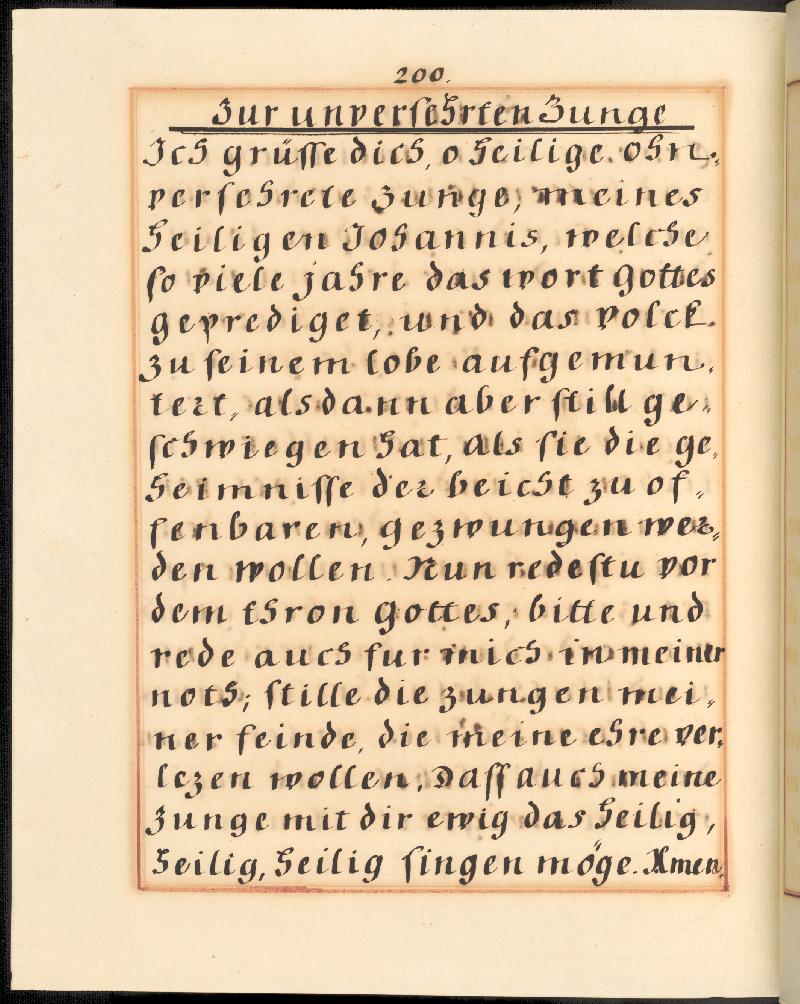 200.
Zur unversehrten Zunge
Ich grüsse dich, o heilige. ohn,,
versehrete zunge, meines
heiligen Johannis, welche
so viele jahre das wort Gottes
geprediget, und das volck
zu seinem lobe aufgemun,,
tert, alsdann aber still ge,,
schwiegen hat, als sie die ge,,
heimnisse der beicht zu of,,
fenbaren, gezwungen wer,,
den wollen. Nun redestu vor
dem thron Gottes, bitte und
rede auch fur mich in meiner
noth; stille die zungen mei,,
ner feinde, die meine ehre ver,,
lezen wollen, Dass auch meine
Zunge mit dir ewig das heilig,
heilig, heilig singen möge. Amen.